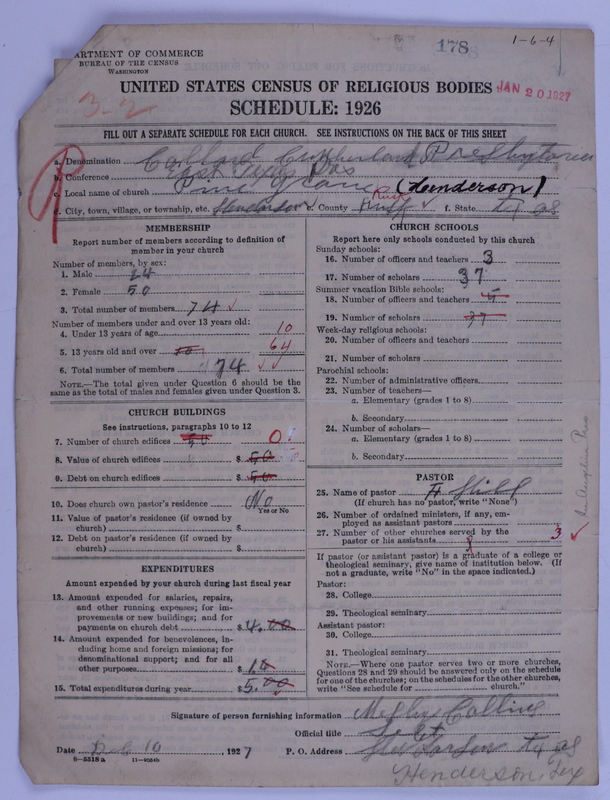 178
1-6-4
ARTMENT OF COMMERCE
BUREAU OF THE CENSUS
WASHINGTON
UNITED STATES CENSUS OF RELIGIOUS BODIES
JAN 20 1927
SCHEDULE: 1926
3-2
FILL OUT A SEPARATE SCHEDULE FOR EACH CHURCH. SEE INSTRUCTIONS ON THE BACK OF THIS SHEET
a. Denomination Collard Cumberland Presbyterien
b. Conference
c. Local name of church Pine Grove (Henderson)
d. City, town, village, or township, etc. Henderson e. County Rusk f. State tex as
MEMBERSHIP
Report number of members according to definition of member in your church
Number of members, by sex:
1. Male 24
2. Female 50
3. Total number of members 74 ✓
Number of members under and over 13 years old:
4. Under 13 years of age 10
5. 13 years old and over 64
6. Total number of members 74 ✓ ✓
NOTE.—The total given under Question 6 should be the same as the total of males and females given under Question 3.
CHURCH BUILDINGS
See instructions, paragraphs 10 to 12
7. Number of church edifices 50 0
8. Value of church edifices $ 50
9. Debt on church edifices $ 50
10. Does church own pastor's residence No
Yes or No
11. Value of pastor's residence (if owned by
church) $
12. Debt on pastor's residence (if owned by
church) $
EXPENDITURES
Amount expended by your church during last fiscal year
13. Amount expended for salaries, repairs,
and other running expenses; for im-
provements or new buildings; and for
payments on church debt $ 4.00
14. Amount expended for benevolences, in-
cluding home and foreign missions; for
denominational support; and for all
other purposes $
15. Total expenditures during year $ 5.00
CHURCH SCHOOLS
Report here only schools conducted by this church
Sunday schools:
16. Number of officers and teachers 3
17. Number of scholars 37
Summer vacation Bible schools:
18. Number of officers and teachers
19. Number of scholars 37
Week-day religious schools:
20. Number of officers and teachers
21. Number of scholars
Parochial schools:
22. Number of administrative officers
23. Number of teachers—
a. Elementary (grades 1 to 8)
b. Secondary
24. Number of scholars—
a. Elementary (grades 1 to 8)
b. Secondary
PASTOR
25. Name of pastor
(If church has no pastor, write "None")
26. Number of ordained ministers, if any, em-
ployed as assistant pastors
27. Number of other churches served by the
pastor or his assistants 3 ✓
If pastor (or assistant pastor) is a graduate of a college or theological seminary, give name of institution below. (If not a graduate, write "No" in the space indicated.)
Pastor:
28. College
29. Theological seminary
Assistant pastor:
30. College
31. Theological seminary
NOTE.—Where one pastor serves two or more churches, Questions 28 and 29 should be answered only on the schedule for one of the churches; on the schedules for the other churches, write "See schedule for church."
Signature of person furnishing information Collins
Official title
Date 10, 1927 P. O. Address tex as
8-5518 a
Henderson, Tex